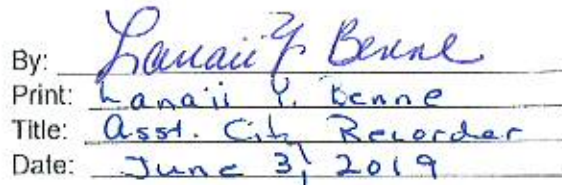 By: Lanaii Y. Benne
Print: Lanaii Y. Benne
Title: Asst. City Recorder
Date: June 3, 2019